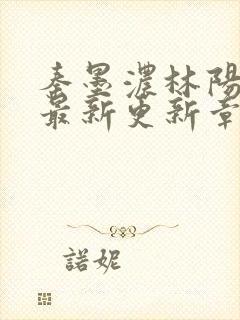 秦墨濃林陽
最新更新章
諾妮